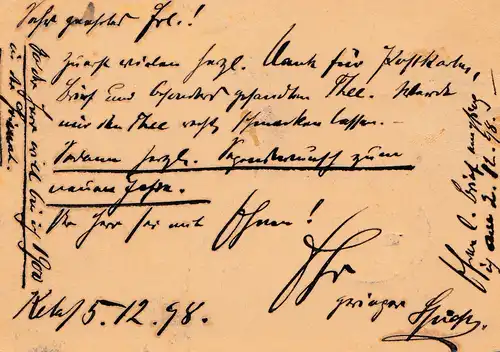 Sehr geehrtes Frl.!
Zuerst vielen herzl. Dank für Postkarten,
Brief und besonders gesandten Thee. Werde
mir den Thee recht schmecken lassen. –
Sodann herzl. Segenswunsch zum
neuen Jahre.
Der Herr sei mit Ihnen!
Ihr
geringer
5.12.98.
Ihren l. Brief empfing
ich am 2.12.98.